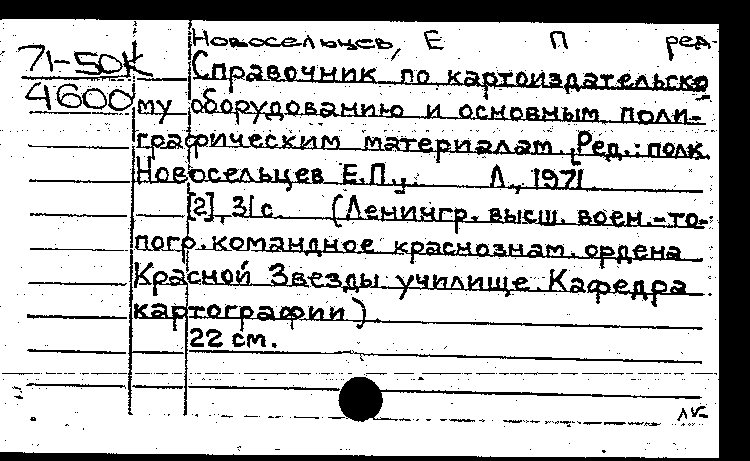 Новосельцев, Е П ред.
71-50К
Справочник по картоиздательско
4600
му оборудованию и основным поли-
графическим материалам. [Ред.: полк.
Новосельцев Е.П.]. Л., 1971.
[2], 31 с. (Ленингр. высш. воен.-то-
погр. командное краснознам. ордена
Красной Звезды училище. Кафедра
картографии).
22 см.